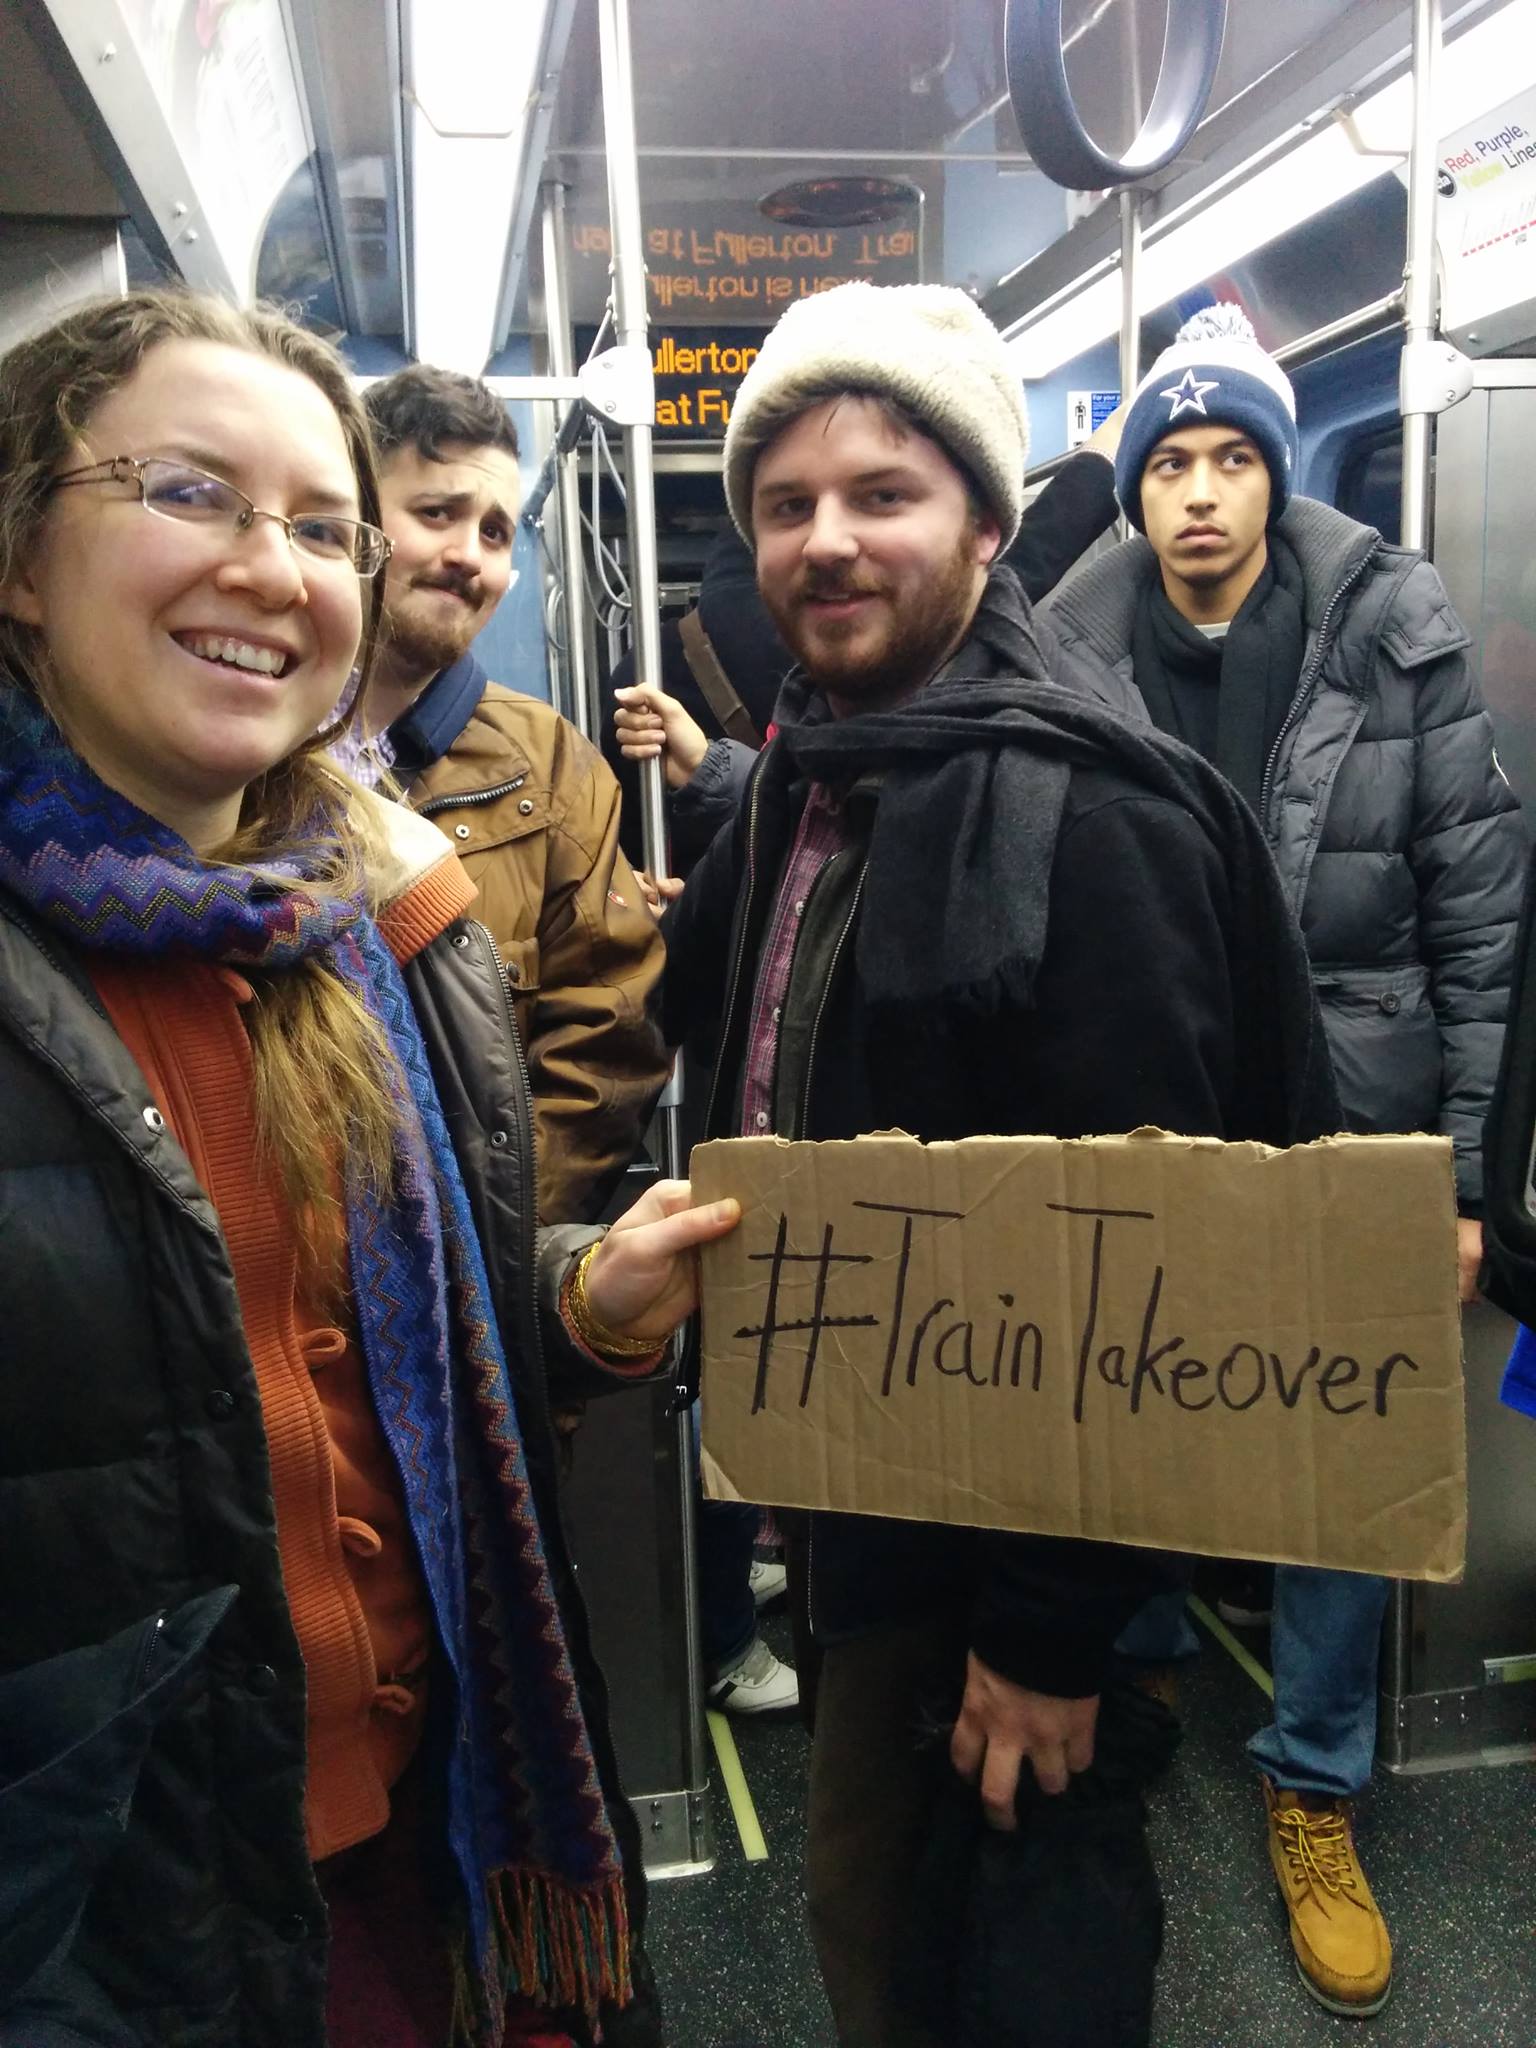 Red, Purple,
Yellow Lines
at Fullerton. Trai
ullerton is next
ullerton
at Fu
For your
#TrainTakeover